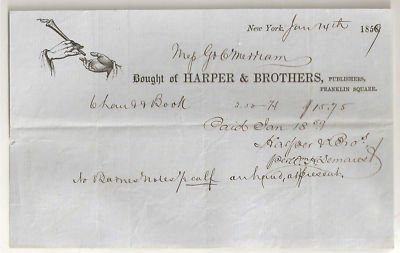 New York, Jan 14th 1857
Mess G & C Merriam
Bought of HARPER & BROTHERS, PUBLISHERS,
FRANKLIN SQUARE.
Book $15.75
Paid Jan 18
Harper & Bros
No Barnes' Notes calf on hand, at present.